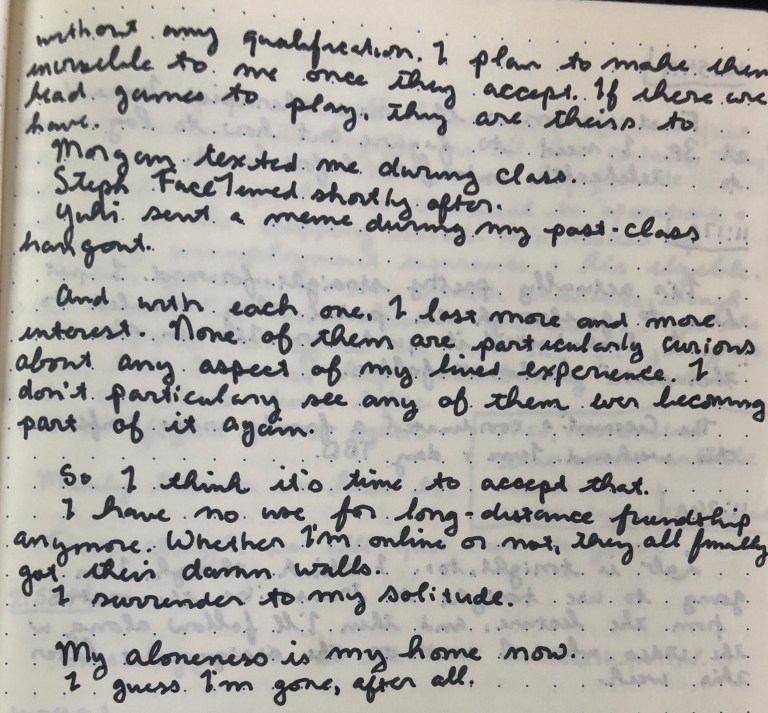 without any qualification. I plan to make them
invisible to me once they accept. If there are
head games to play, they are theirs to
have.
Morgan texted me during class.
Steph FaceTimed shortly after.
Yuki sent a meme during my post-class
hangout.
And with each one, I lost more and more
interest. None of them are particularly curious
about any aspect of my lived experience. I
don't particulary see any of them ever becoming
part of it again.
So I think it's time to accept that.
I have no use for long-distance friendship
anymore. Whether I'm online or not, they all finally
got their damn walls.
I surrender to my solitude.
My aloneness is my home now.
I guess I'm gone, after all.